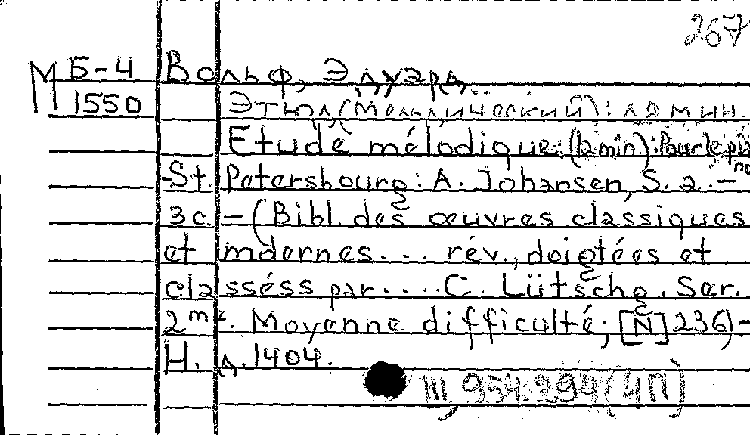 267
М Б-4 Вольф, Эдуард.
1550 Этюд (Мелодический): ля мин.
Etude mélodique: (la min): Pour le pia
no
St. Petersbourg: A. Johansen, S. a. –
3c. – (Bibl. des œuvres classiques
et mdernes... rév., doigtées et
classéss par.... C. Lütschg. Ser.
2me. Moyenne difficulté; [N] 236) –
Н. д. 1404.
III, 954.294 (4П)